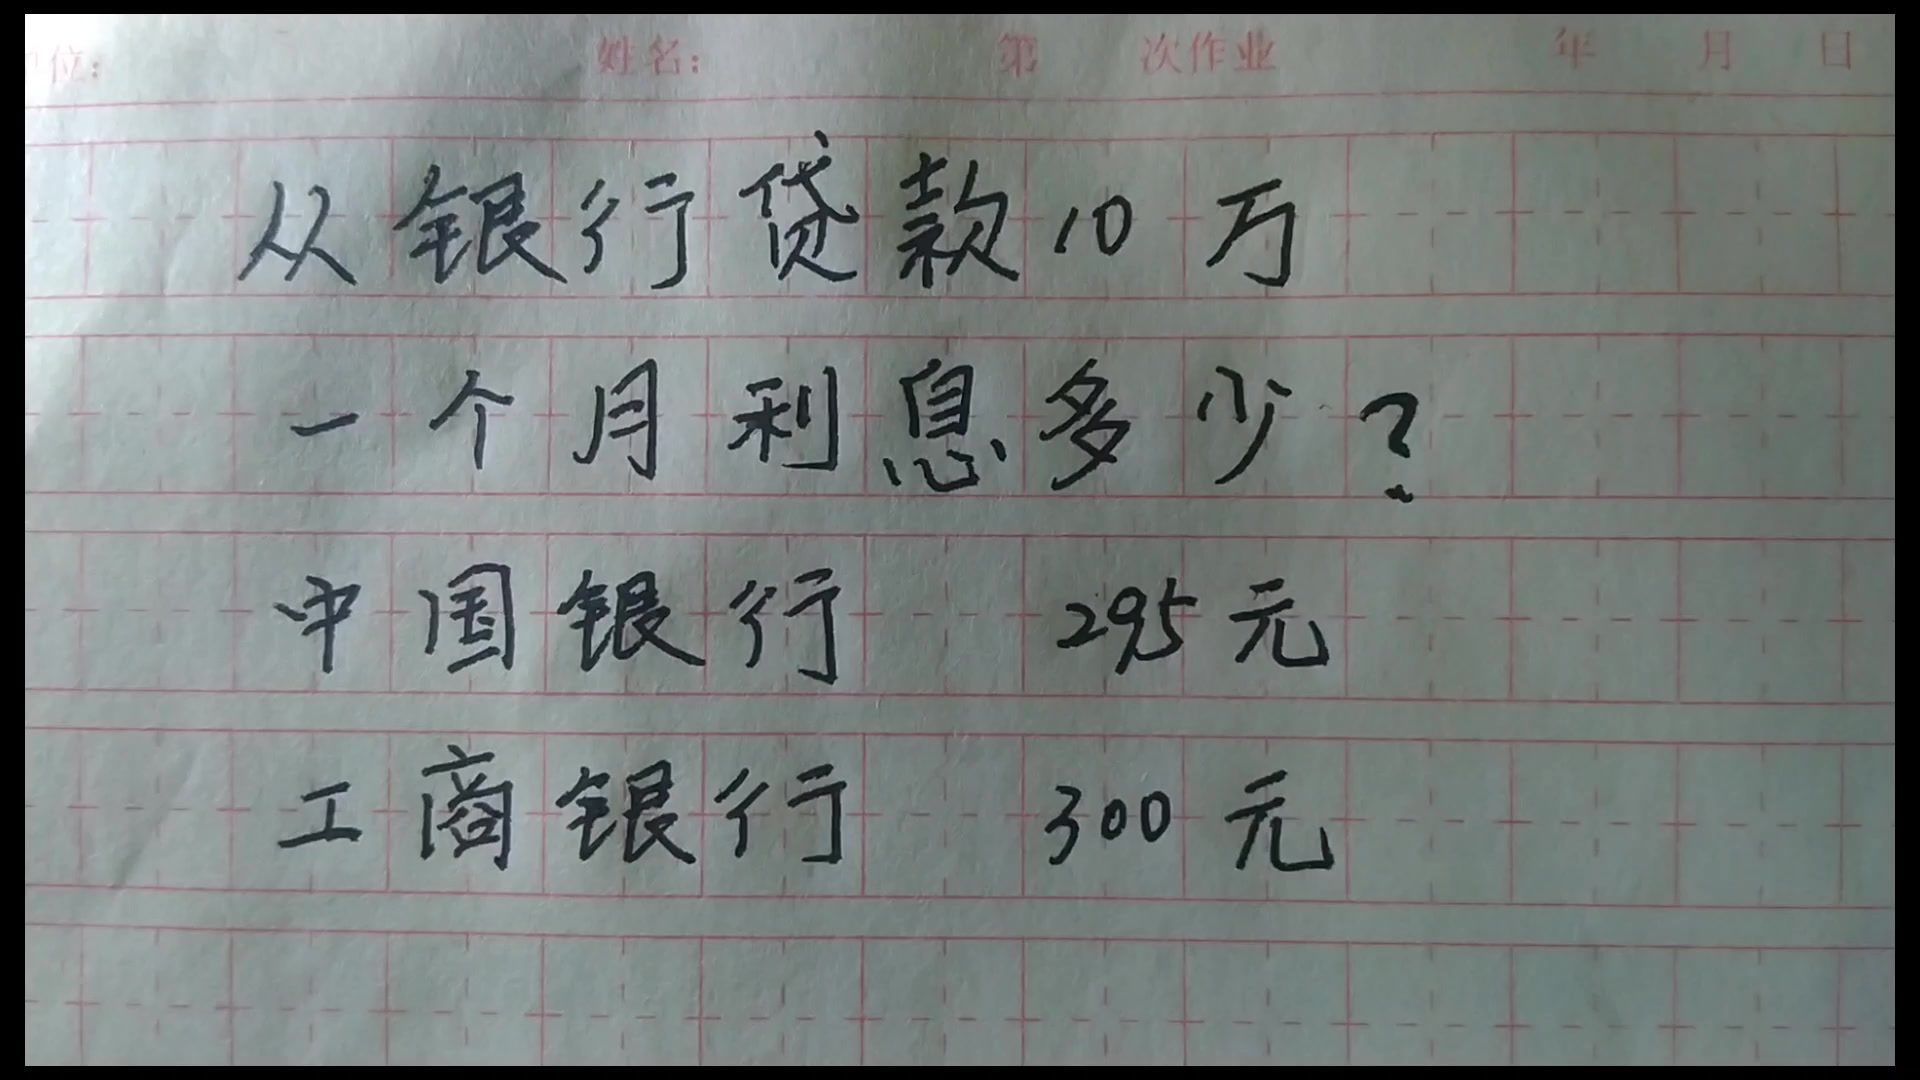 位：　姓名：　第　次作业　年　月　日
从银行贷款10万
一个月利息多少？
中国银行　295元
工商银行　300元